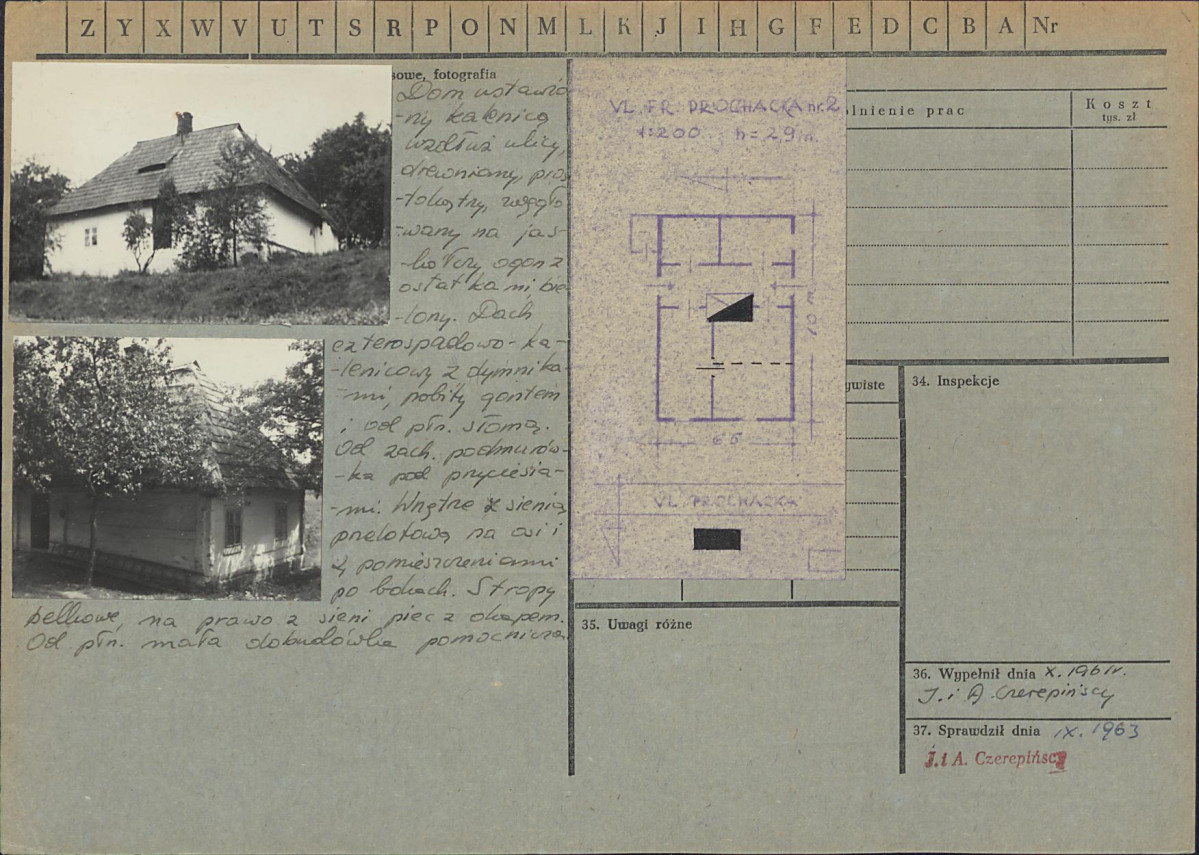 Z Y X W V U T S R P O N M L K J I H G F E D C B A Nr
sowe, fotografia
Dom ustawio
-ny kalenicą
wzdłuż ulicy,
drewniany, pros
-tokątny, węgło
-wany na jas-
-kółczy ogon z
ostatkami bie
-lony. Dach
czterospadowo-ka-
-lenicowy z dymnika-
-mi, pobity gontem
i od płn. słomą.
Od zach. podmurów-
-ka pod przyciesia-
-mi. Wnętrze z sienią
przelotową na osi i
z pomieszczeniami
po bokach. Stropy
belkowe, na prawo z sieni piec z okapem.
Od płn. mała dobudówka pomocnicza
UL. FR. PROCHACKA nr. 2
1:200 h = 2,9 m.
10 m
6 5
UL. PROCHACKA
lnienie prac
Koszt
tys. zł
ywiste
34. Inspekcje
35. Uwagi różne
36. Wypełnił dnia X. 1961r.
J. i A. Czerepińscy
37. Sprawdził dnia IX. 1963
J. i A. Czerepińscy